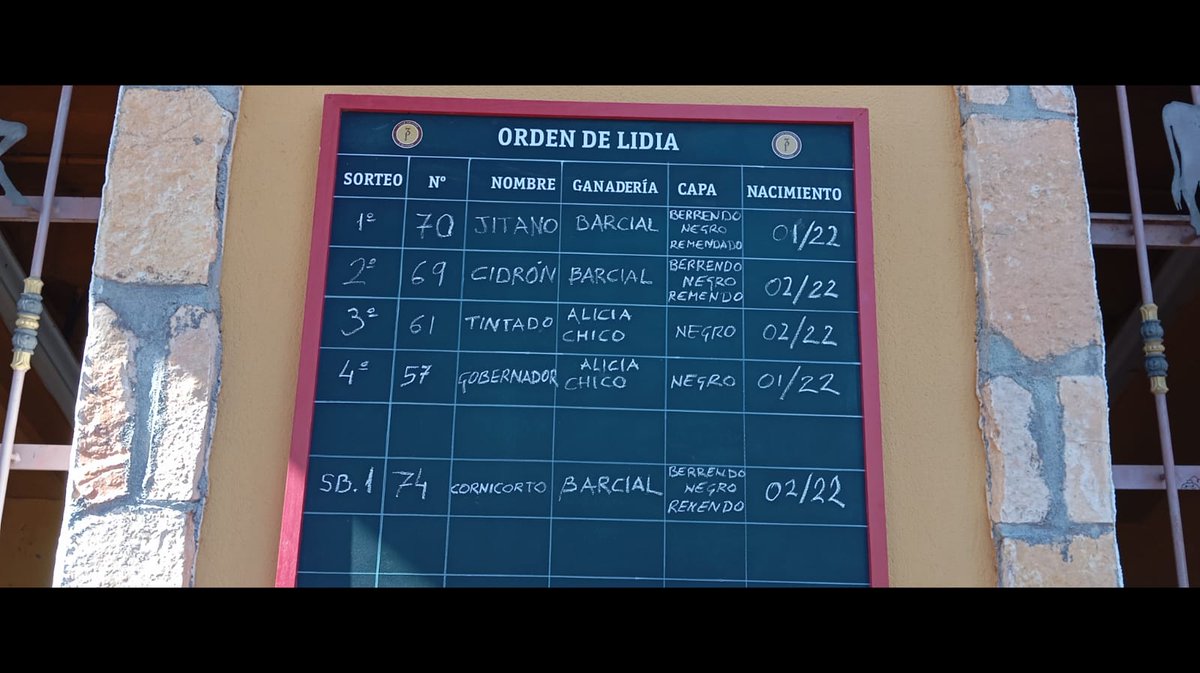 ORDEN DE LIDIA
SORTEO Nº NOMBRE GANADERÍA CAPA NACIMIENTO
1º 70 JITANO BARCIAL BERRENDO NEGRO REMENDADO 01/22
2º 69 CIDRÓN BARCIAL BERRENDO NEGRO REMENDO 02/22
3º 61 TINTADO ALICIA CHICO NEGRO 02/22
4º 57 GOBERNADOR ALICIA CHICO NEGRO 01/22
SB.1 74 CORNICORTO BARCIAL BERRENDO NEGRO REMENDO 02/22